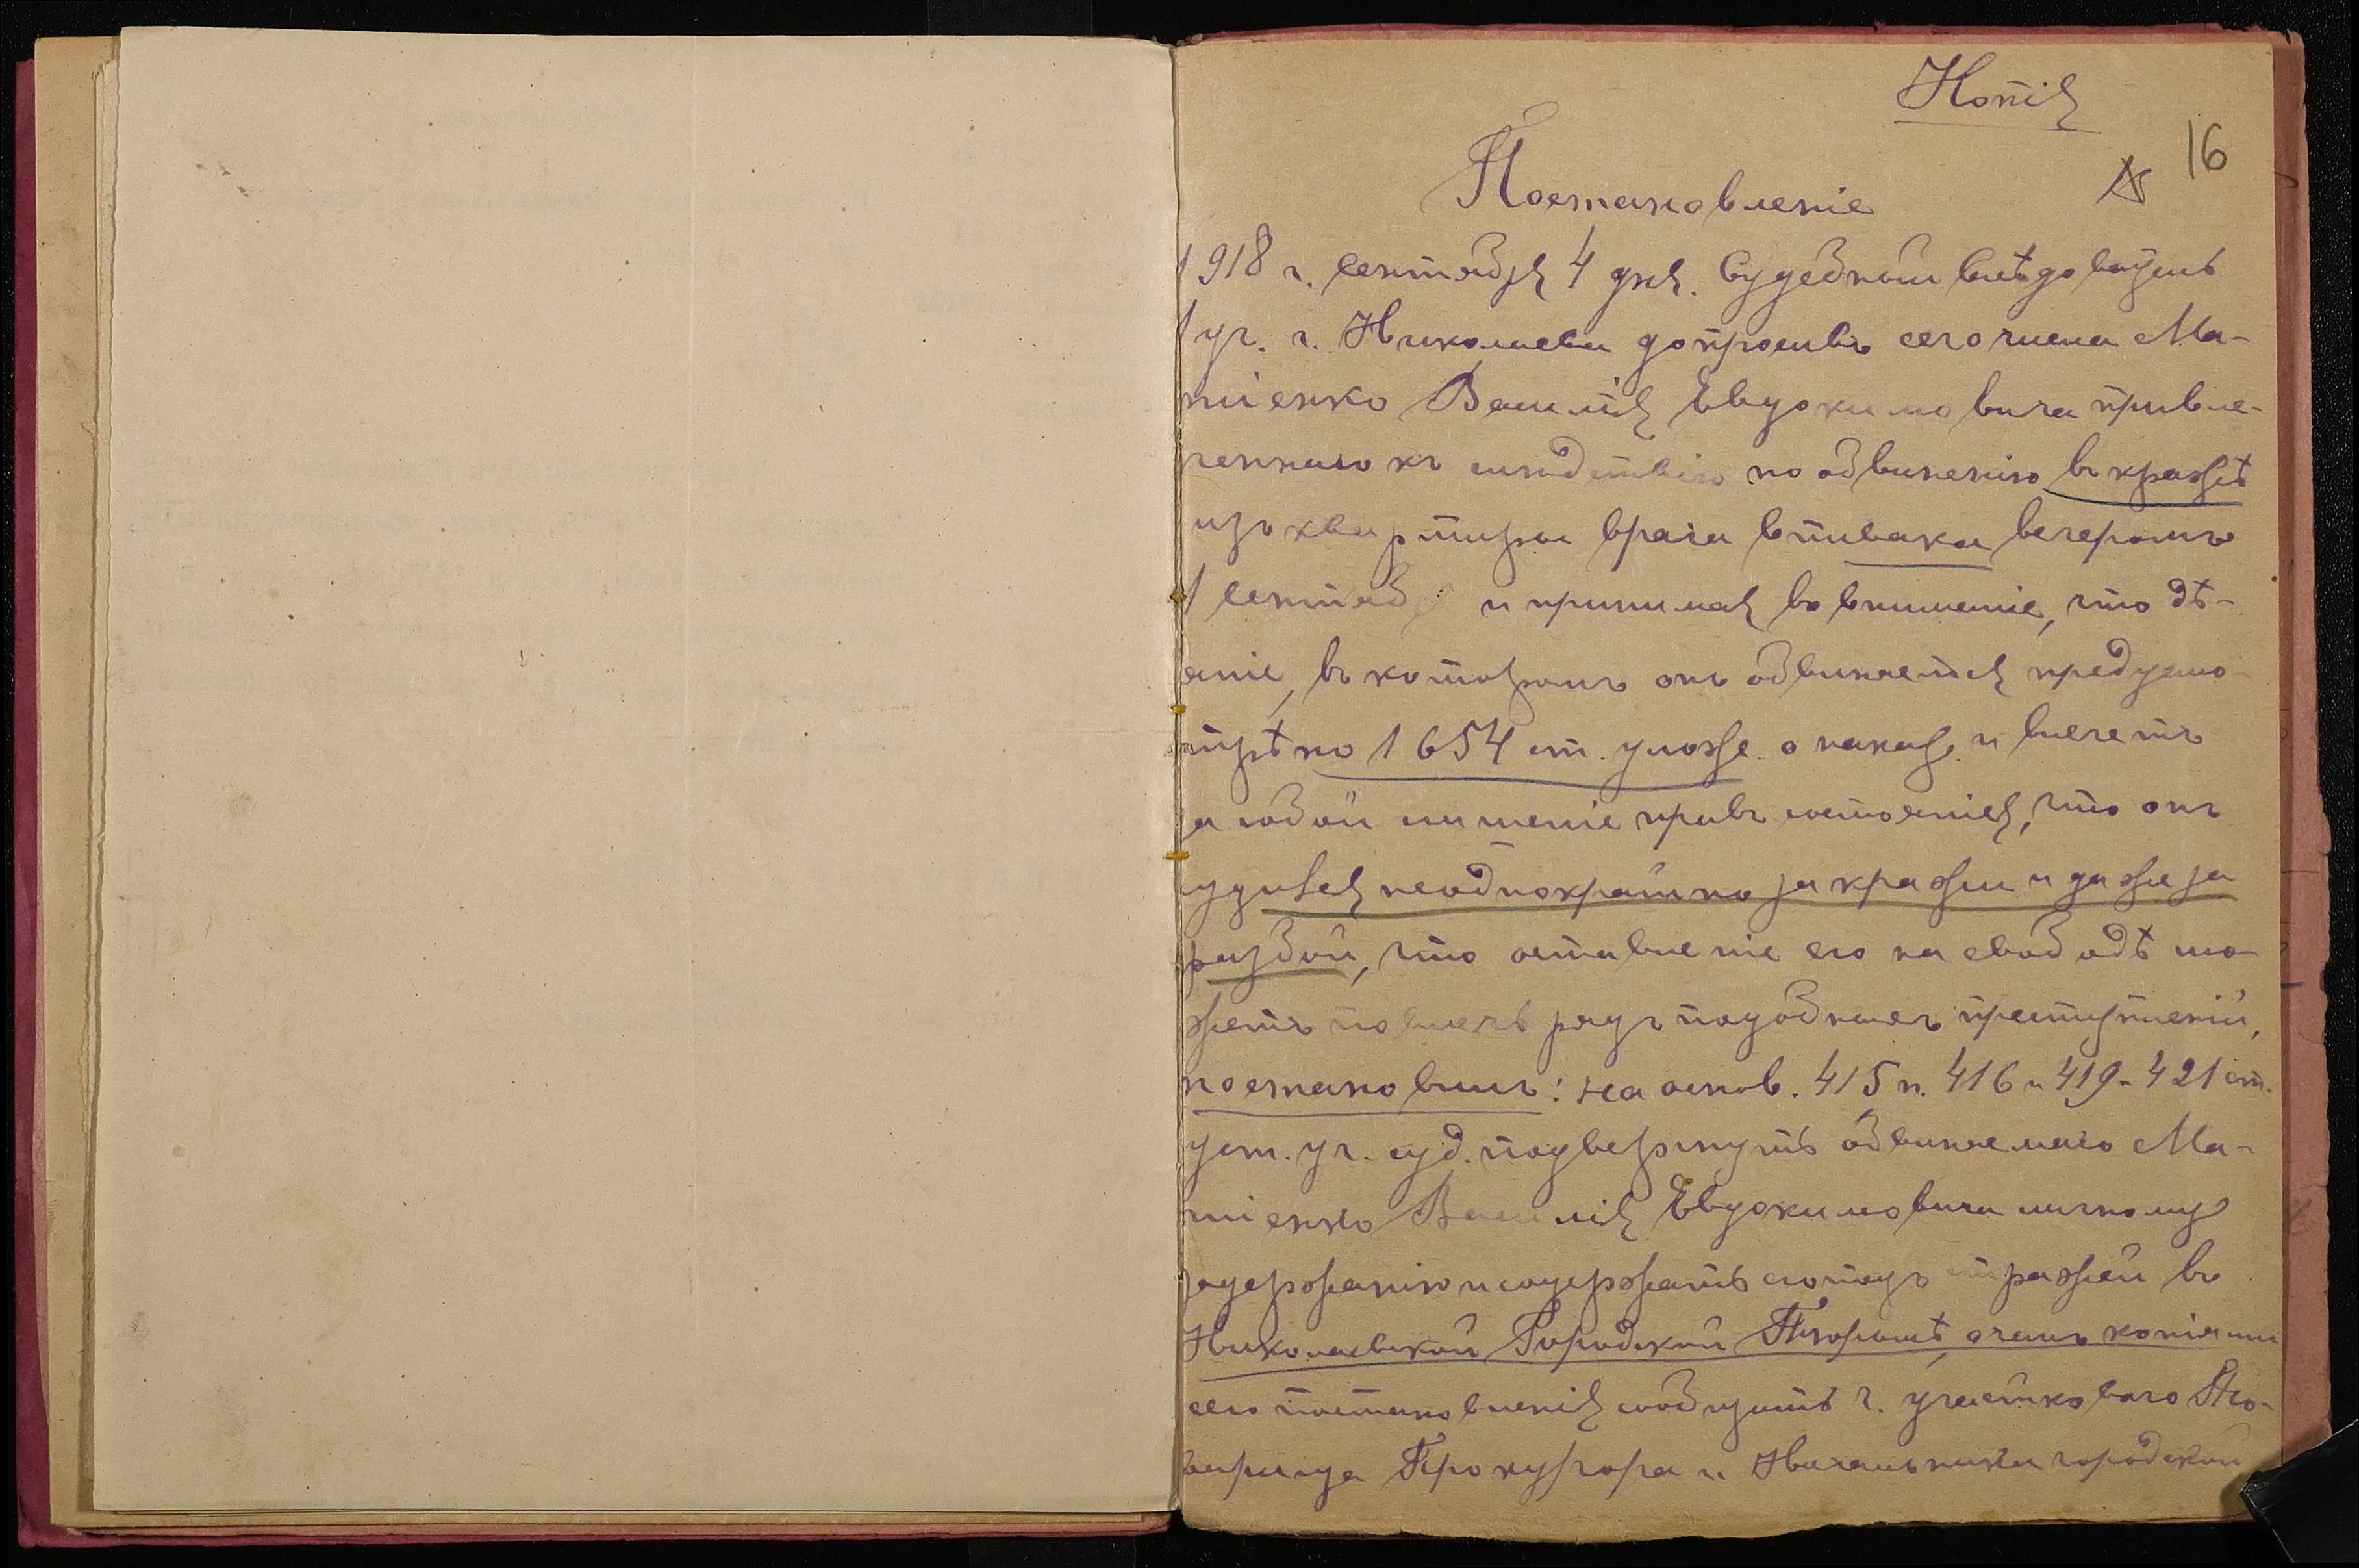 Копія
16
Постановленіе
1918 г. сентября 4 дня. Судебный слѣдователь
1 уч. г. Николаева допросивъ сего числа Ма-
тіенко Василія Евдокимовича привле-
ченнаго къ слѣдствію по обвиненію въ кражѣ
изъ квартиры врача Спивака вечеромъ
1 сентяб и принимая во вниманіе, что дѣ-
яніе, въ которомъ онъ обвиняется предусмо-
трѣно 1654 ст. улож. о наказ. и влечетъ
за собой лишеніе правъ состоянія, что онъ
судился неоднократно за кражи и даже за
разбой, что оставленіе его на свободѣ мо-
жетъ повлечь рядъ подобныхъ преступленій,
постановилъ: на основ. 415 п. 416 и 419-421 ст.
уст. уг. суд. подвергнуть обвиняемаго Ма-
тіенко Василія Евдокимовича личному
задержанію и содержать его подъ стражей въ
Николаевской Городской Тюрьмѣ, о чемъ копіями
сего постановленія сообщить г. участковаго То-
варища Прокурора и Начальника городской